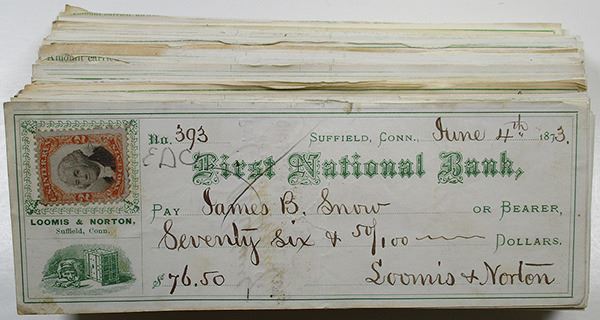 Amount carried
No. 393 SUFFIELD, CONN., June 4th 1873.
EDC
First National Bank,
PAY James B. Snow OR BEARER,
Seventy Six & 50/100 DOLLARS.
$76.50 Loomis & Norton
LOOMIS & NORTON,
Suffield, Conn.